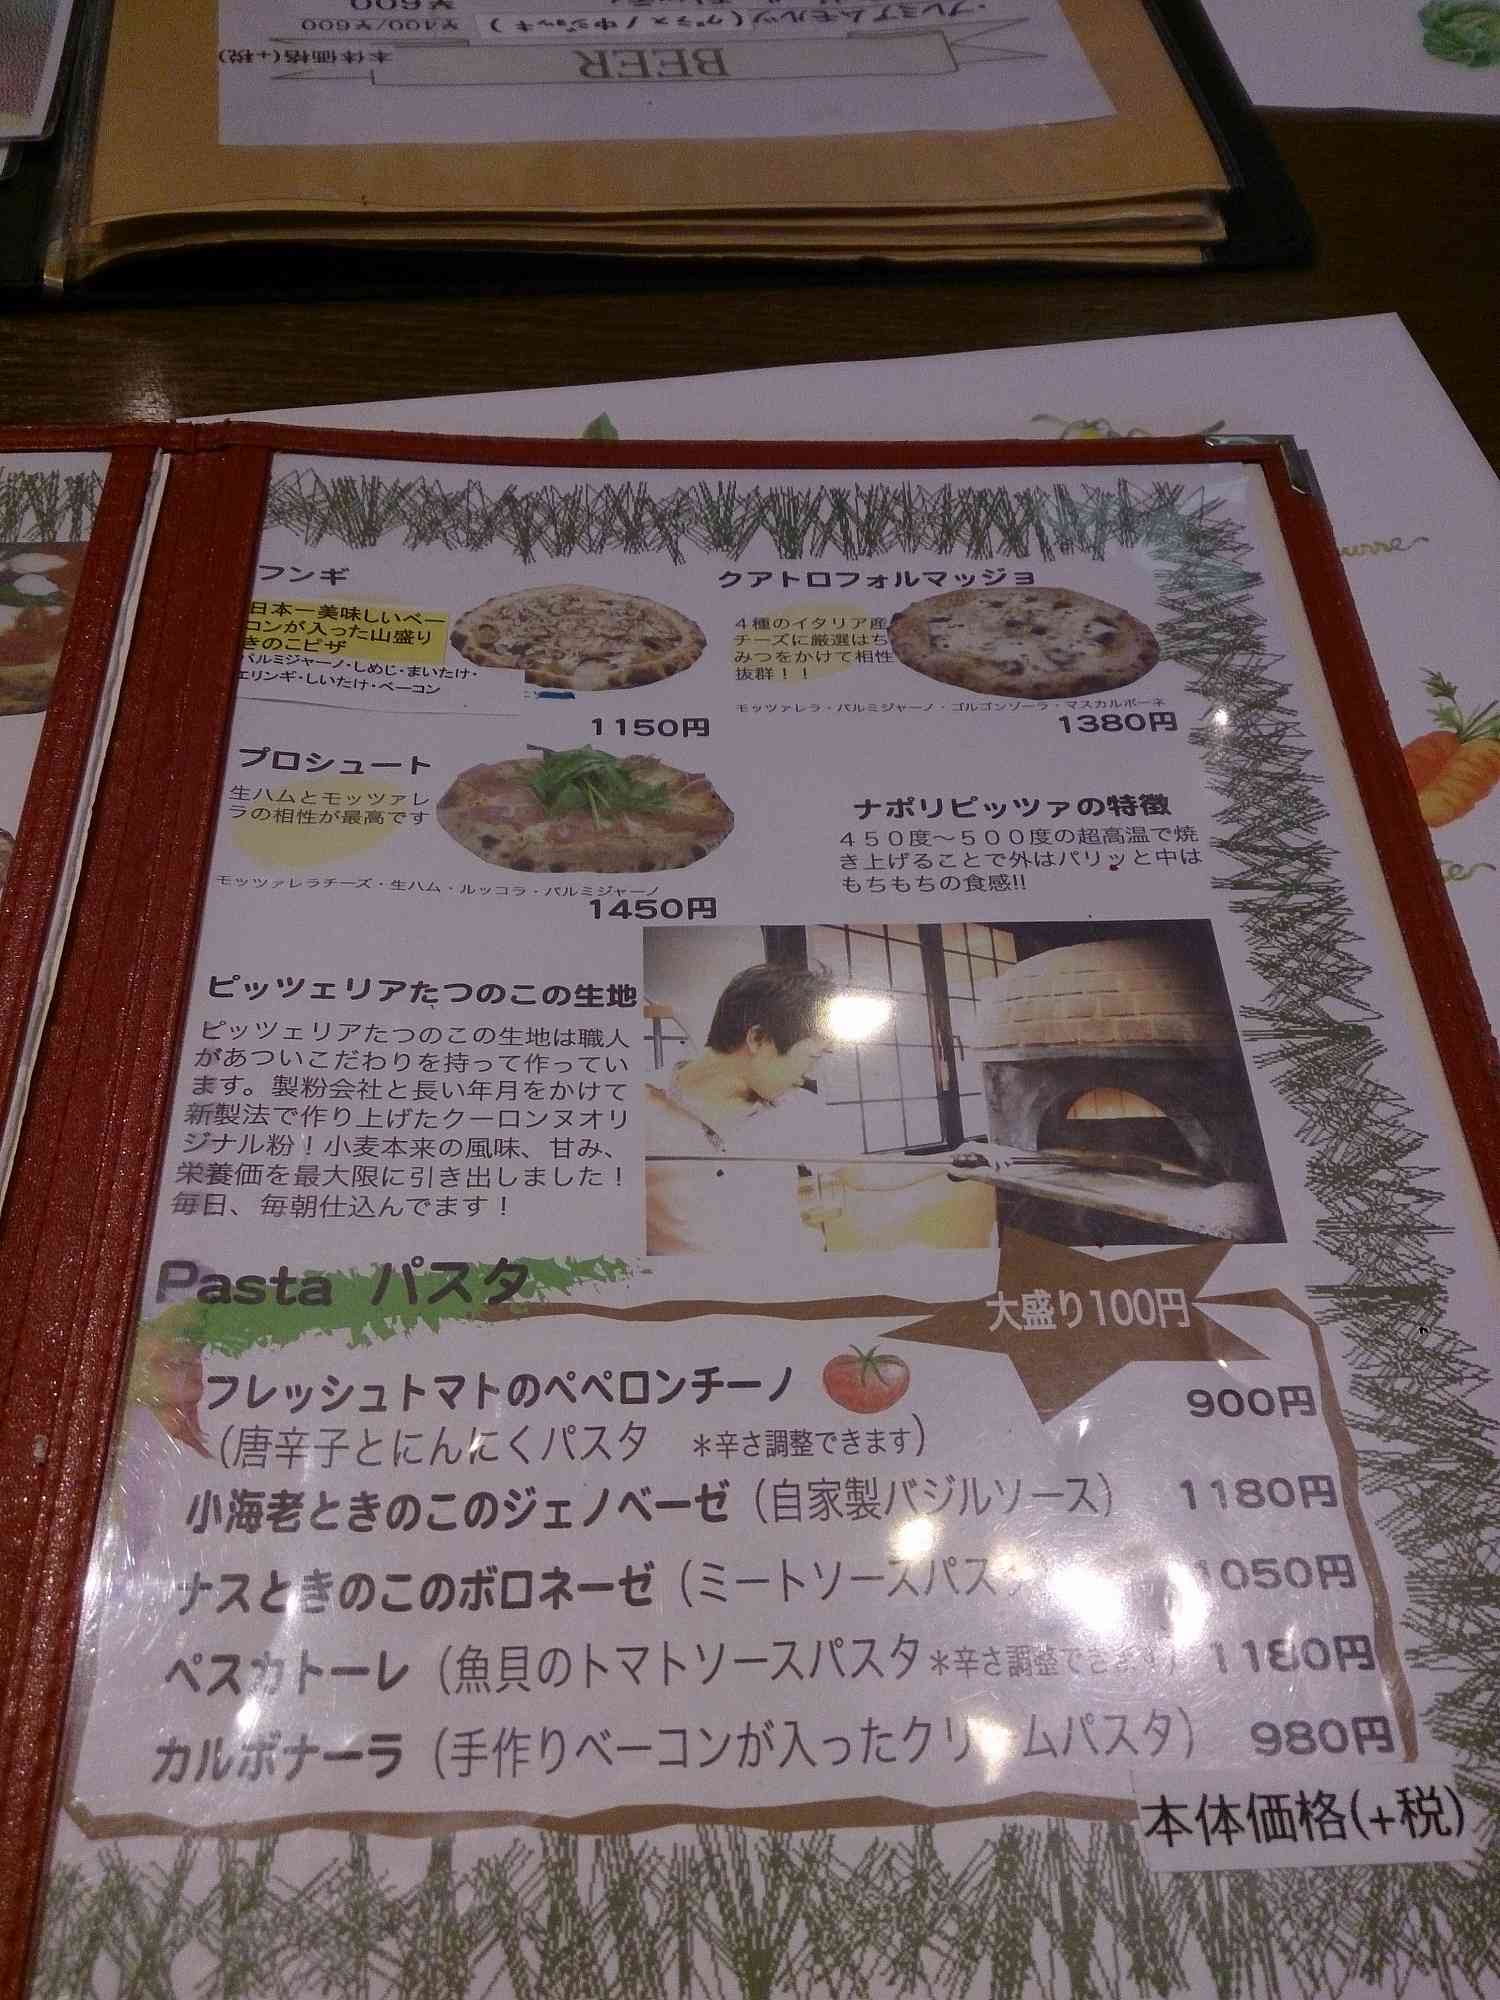 BEER
本体価格(+税)
・プレミアムモルツ(グラス/中ジョッキ)
¥400/¥600
フンギ
日本一美味しいベー
コンが入った山盛り
きのこピザ
パルミジャーノ・しめじ・まいたけ・
エリンギ・しいたけ・ベーコン
1150円
クアトロフォルマッジョ
4種のイタリア産
チーズに厳選はち
みつをかけて相性
抜群！！
モッツァレラ・パルミジャーノ・ゴルゴンゾーラ・マスカルポーネ
1380円
プロシュート
生ハムとモッツァレ
ラの相性が最高です
モッツァレラチーズ・生ハム・ルッコラ・パルミジャーノ
1450円
ナポリピッツァの特徴
４５０度〜５００度の超高温で焼
き上げることで外はパリッと中は
もちもちの食感!!
ピッツェリアたつのこの生地
ピッツェリアたつのこの生地は職人
があついこだわりを持って作ってい
ます。製粉会社と長い年月をかけて
新製法で作り上げたクーロンヌオリ
ジナル粉！小麦本来の風味、甘み、
栄養価を最大限に引き出しました！
毎日、毎朝仕込んでます！
Pasta パスタ
大盛り100円
フレッシュトマトのペペロンチーノ 900円
（唐辛子とにんにくパスタ ＊辛さ調整できます）
小海老ときのこのジェノベーゼ（自家製バジルソース） 1180円
ナスときのこのボロネーゼ（ミートソースパスタ 1050円
ペスカトーレ（魚貝のトマトソースパスタ＊辛さ調整できます） 1180円
カルボナーラ（手作りベーコンが入ったクリームパスタ） 980円
本体価格(+税)